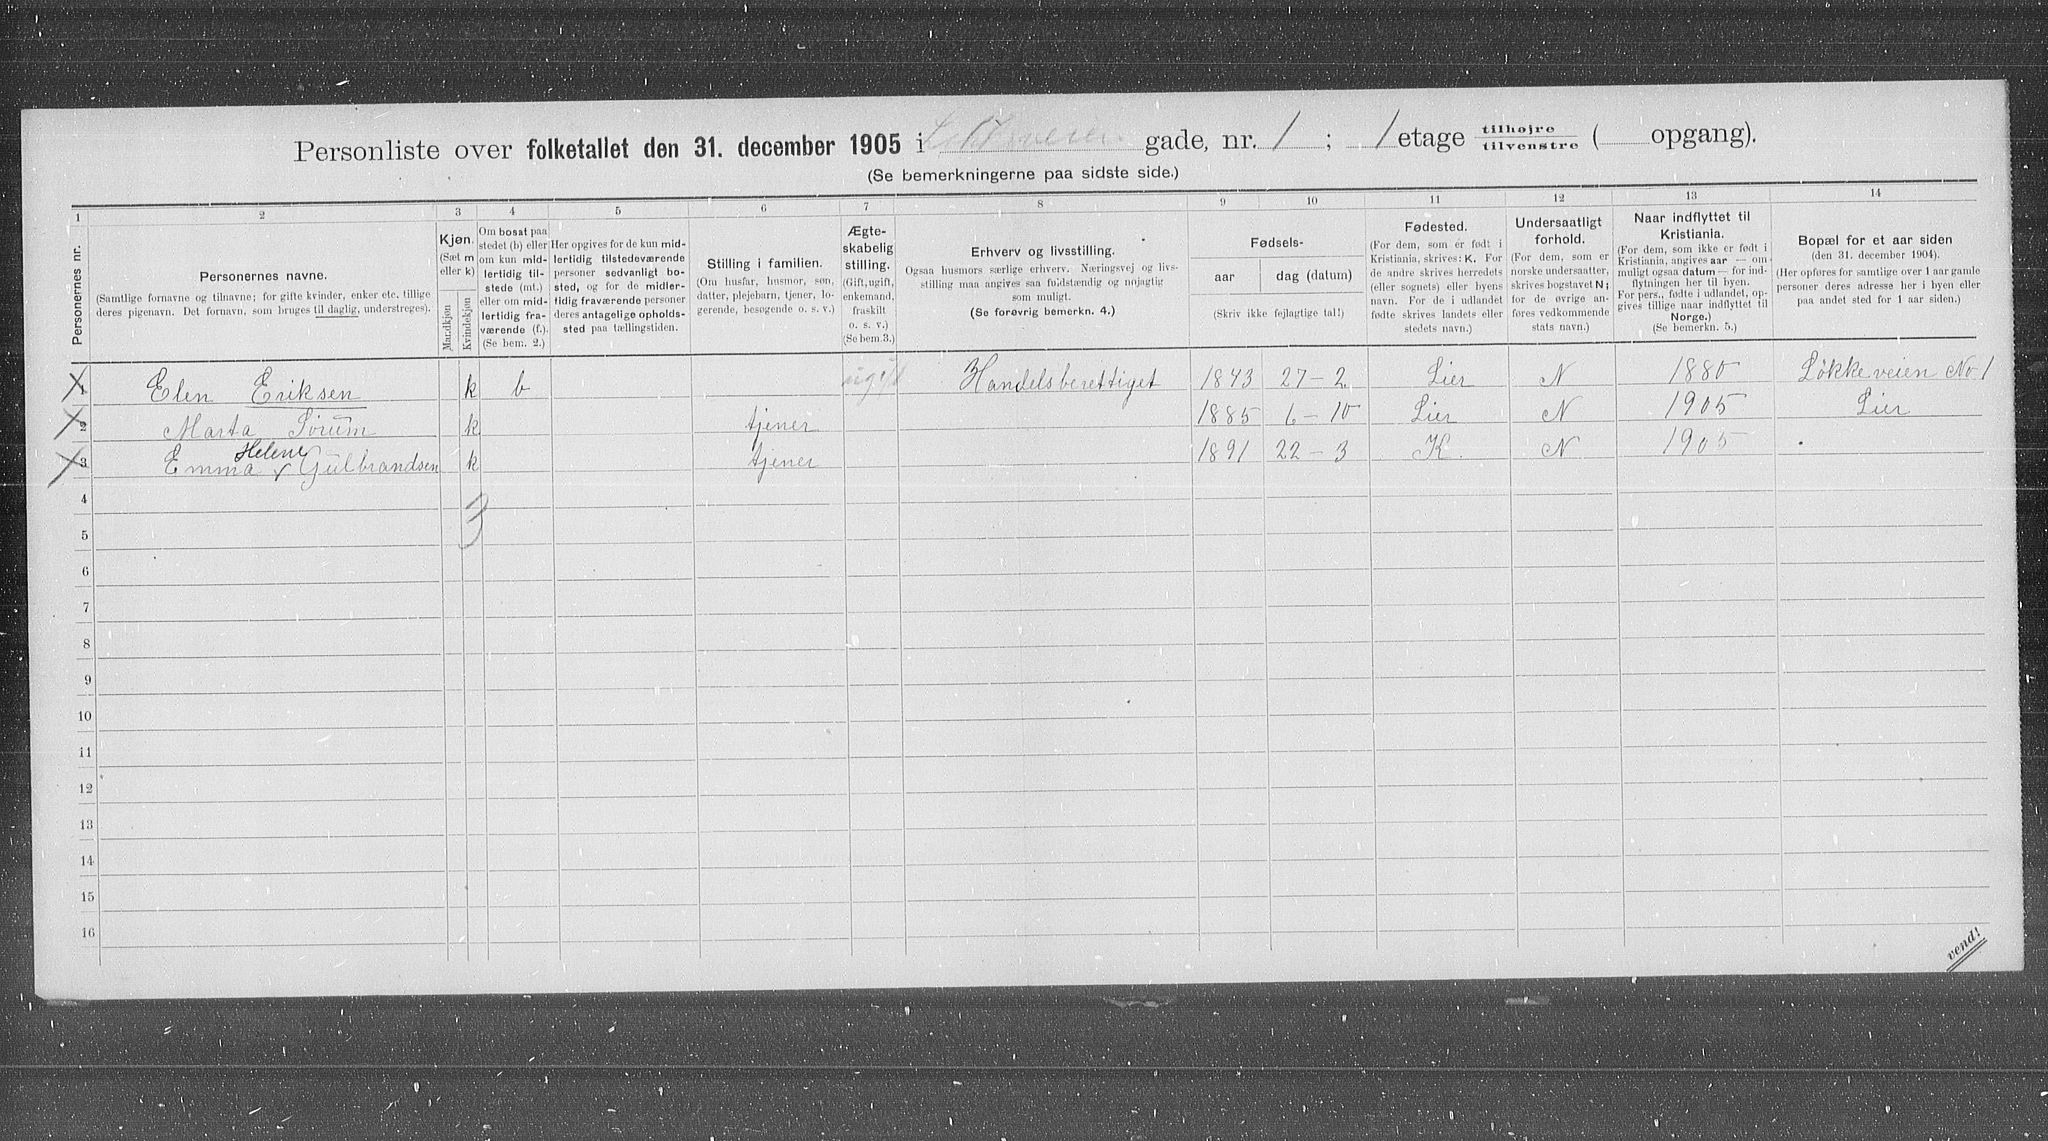 Personliste over folketallet den 31. december 1905 i Løkkeveien gade, nr. 1 ; 1 etage tilhøjre tilvenstre ( opgang).
(Se bemerkningerne paa sidste side.)
1 2 3 4 5 6 7 8 9 10 11 12 13 14
Personernes nr.
Personernes navne.
(Samtlige fornavne og tilnavne; for gifte kvinder, enker etc. tillige
deres pigenavn. Det fornavn, som bruges til daglig, understreges).
Kjøn.
(Sæt m
eller k)
Mandkjøn
Kvindekjøn
Om bosat paa
stedet (b) eller
om kun mid-
lertidig til-
stede (mt.)
eller om mid-
lertidig fra-
værende (f.).
(Se bem. 2.)
Her opgives for de kun mid-
lertidig tilstedeværende
personer sedvanligt bo-
sted, og for de midler-
tidig fraværende personer
deres antagelige opholds-
sted paa tællingstiden.
Stilling i familien.
(Om husfar, husmor, søn,
datter, plejebarn, tjener, lo-
gerende, besøgende o. s. v.)
Ægte-
skabelig
stilling.
(Gift, ugift,
enkemand,
fraskilt
o. s. v.)
(Se bem. 3.)
Erhverv og livsstilling.
Ogsaa husmors særlige erhverv. Næringsvej og livs-
stilling maa angives saa fuldstændig og nøjagtig
som muligt.
(Se forøvrig bemerkn. 4.)
Fødsels-
aar
dag (datum)
(Skriv ikke fejlagtige tal!)
Fødested.
(For dem, som er født i
Kristiania, skrives: K. For
de andre skrives herredets
(eller sognets) eller byens
navn. For de i udlandet
fødte skrives landets eller
stedets navn.)
Undersaatligt
forhold.
(For dem, som er
norske undersaatter,
skrives bogstavet N;
for de øvrige an-
føres vedkommende
stats navn.)
Naar indflyttet til
Kristiania.
(For dem, som ikke er født i
Kristiania, angives aar — om
muligt ogsaa datum — for ind-
flytningen her til byen.
For pers., fødte i udlandet, op-
gives tillige naar indflyttet til
Norge.)
(Se bemerkn. 5.)
Bopæl for et aar siden
(den 31. december 1904).
(Her opføres for samtlige over 1 aar gamle
personer deres adresse her i byen eller
paa andet sted for 1 aar siden.)
1 Elen Eriksen k b ugift Handelsberettiget 1843 27-2 Lier N 1880 Løkkeveien No 1
2 Marta Sørum k tjener 1885 6-10 Lier N 1905 Lier
3 Emma Helene Gulbrandsen k tjener 1891 22-3 K. N 1905
4
3
5
6
7
8
9
10
11
12
13
14
15
16
vend!